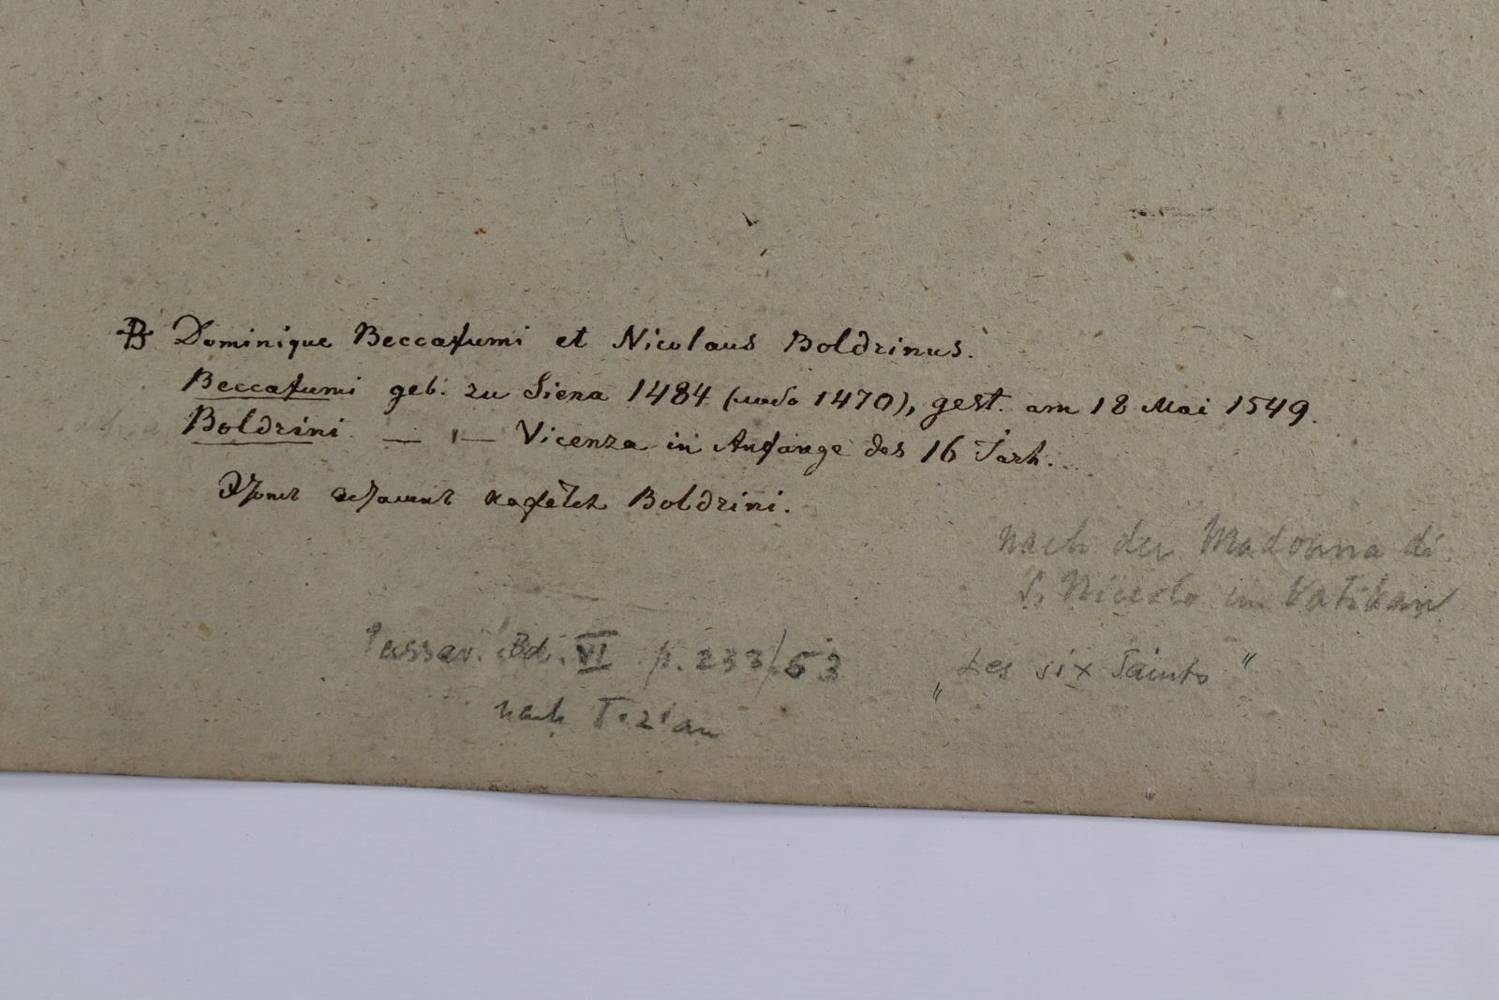 B Dominique Beccafumi et Nicolaus Boldrinus.
Beccafumi geb. zu Siena 1484 (1470), gest. am 18 Mai 1549.
Boldrini. — „ — Vicenza in Anfange des 16 Jarh.
Boldrini.
nach der Madonna di
S. Niccolo im Vatikan
Passav. Bd. VI p. 233/53
„Les six Saints"
nach Tizian